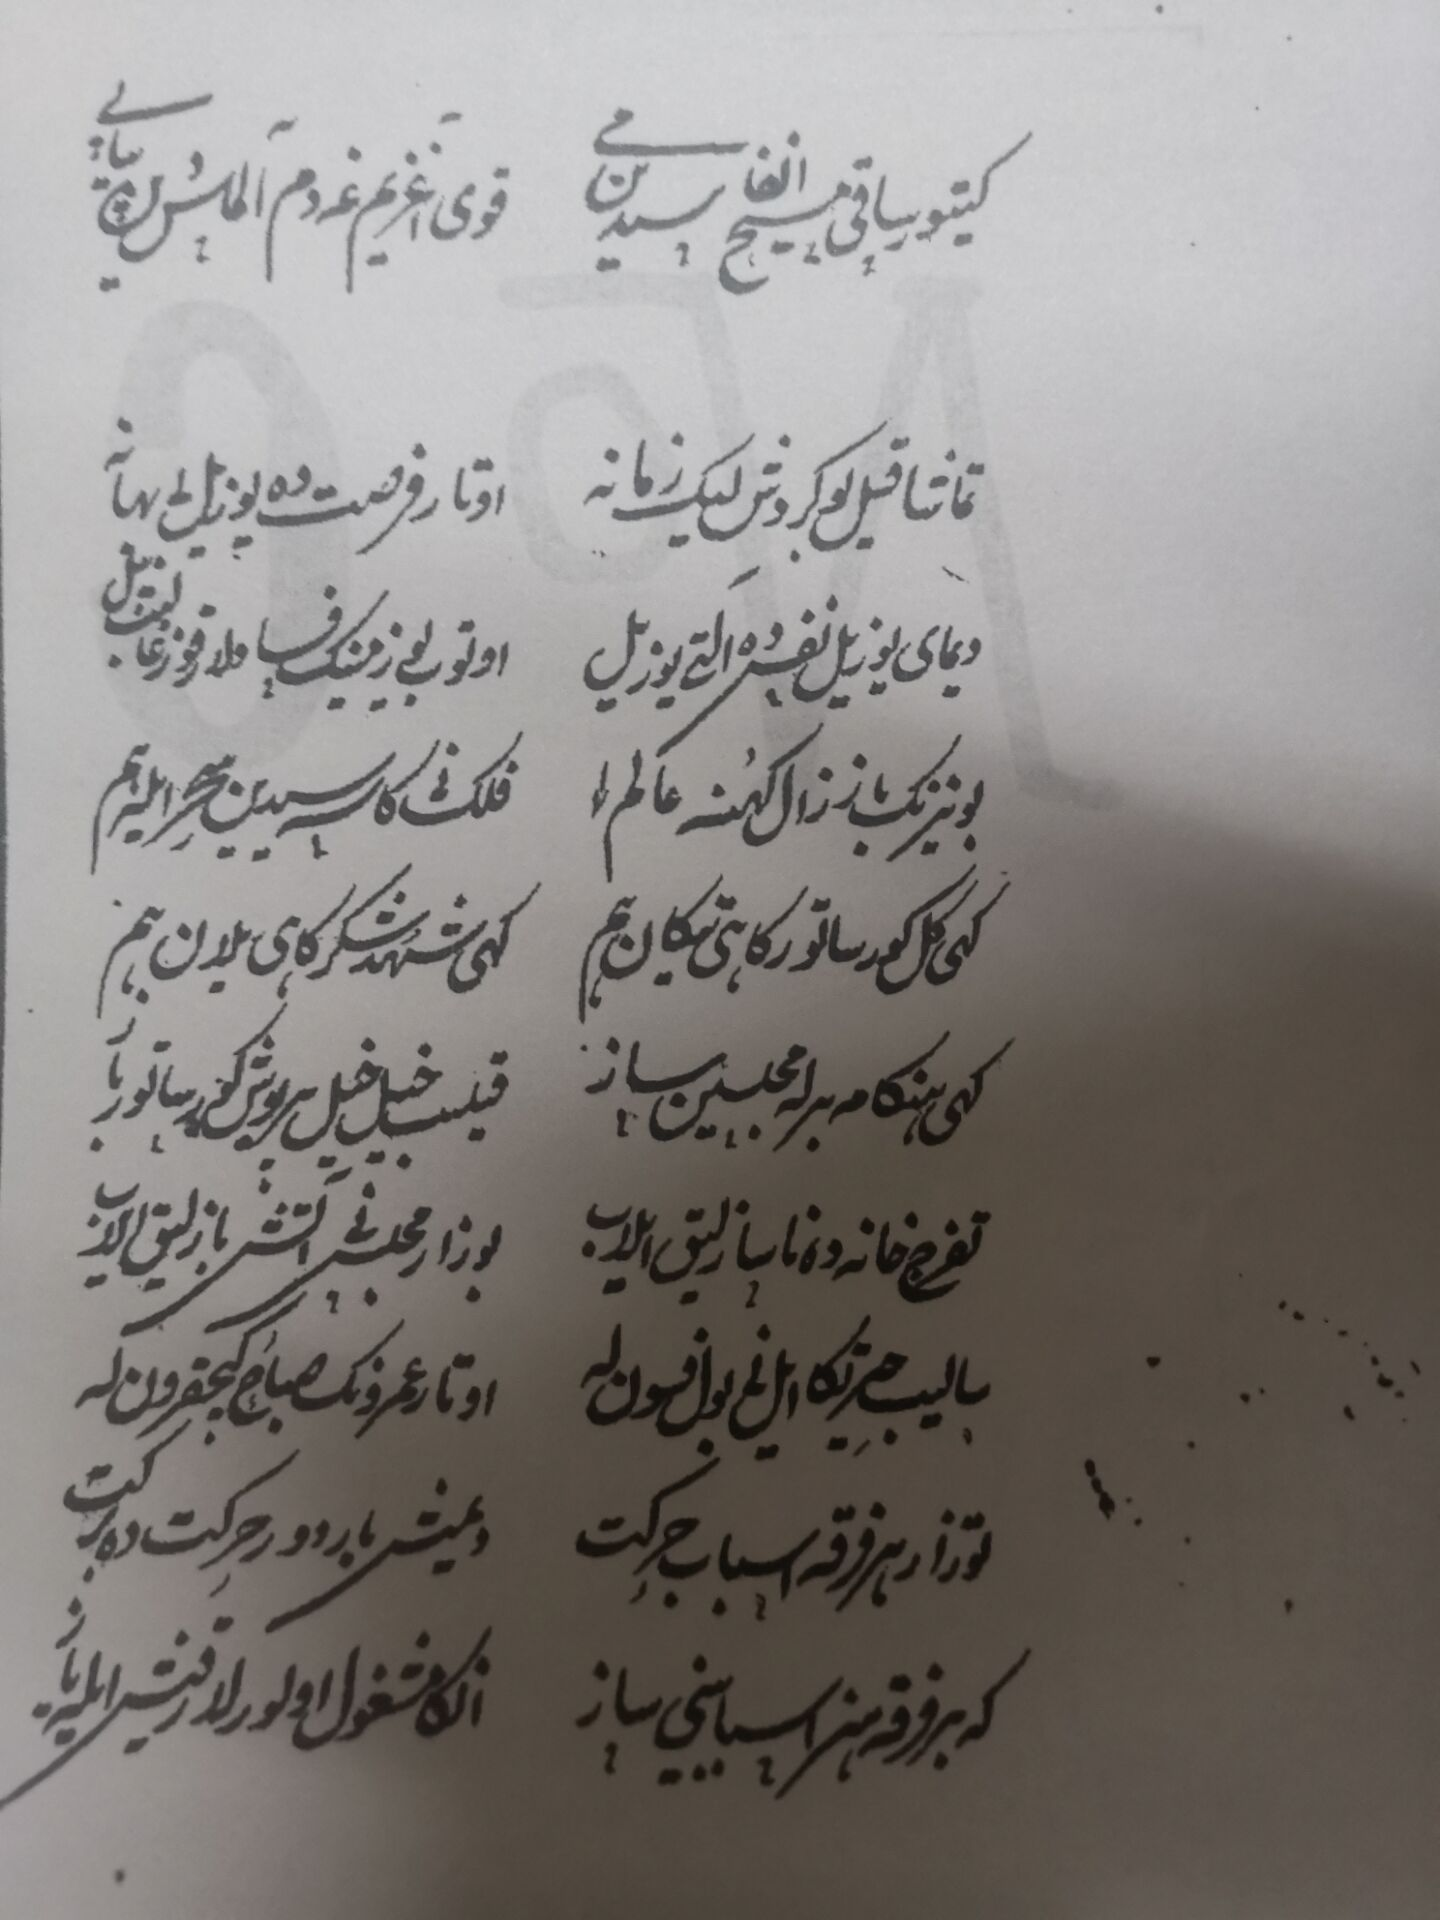 کیتور ساقی مسیح انفاسیدین می قوی آغزیم غه دم آلماسدین
تماشا قیل بو کردش لیک زمانه اوتار فرصت ده یوز ییل بی بهانه
دیمای یوز ییل نفس ده التی یوز ییل اوتوب یر
بو نیرنک باز زال کهنه عالم فلک نی کاسه سیدین سحر ایله هم
کهی کل کورساتور کاهی تیکان هم کهی شهد شکر کاهی یلان هم
کهی هنکامه بیرله مجلسین ساز قیلیب خیل خیل پریوش کورساتور باز
تفرج خانه ده ناسازلیق ایلاب بوزار مجلس نی آتش بازلیق ایلاب
سالیب حیرتکا ایل نی بو افسون له اوتار عمرونک صباح کیچقرون له
توزار هر فرقه اسباب حرکت دیمیش باردور حرکت ده برکت
که هر فرقه هنر اسبابینی ساز انکا مشغول اولورلار قیش ایله یاز